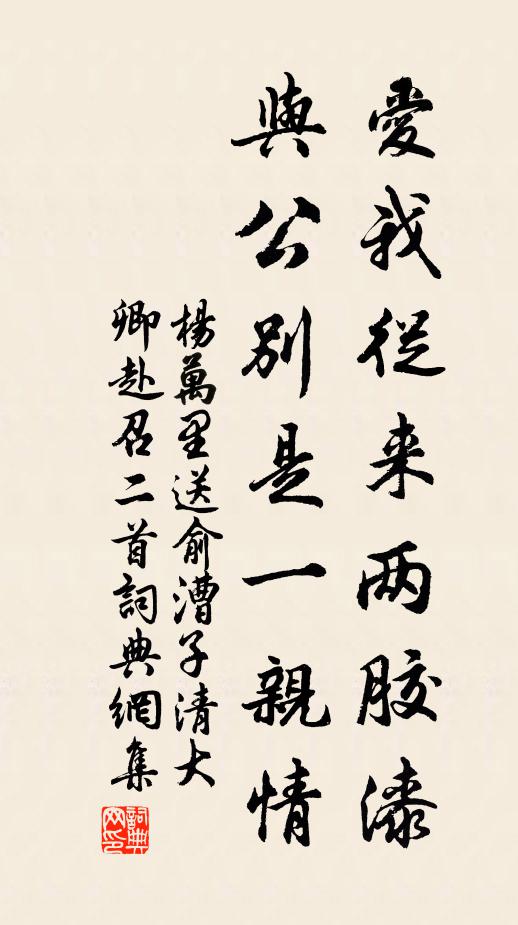 愛我從来两胶漆
與公别是一親情
楊萬里送俞漕子清大
卿赴召二首詞典網集
詞典
网印